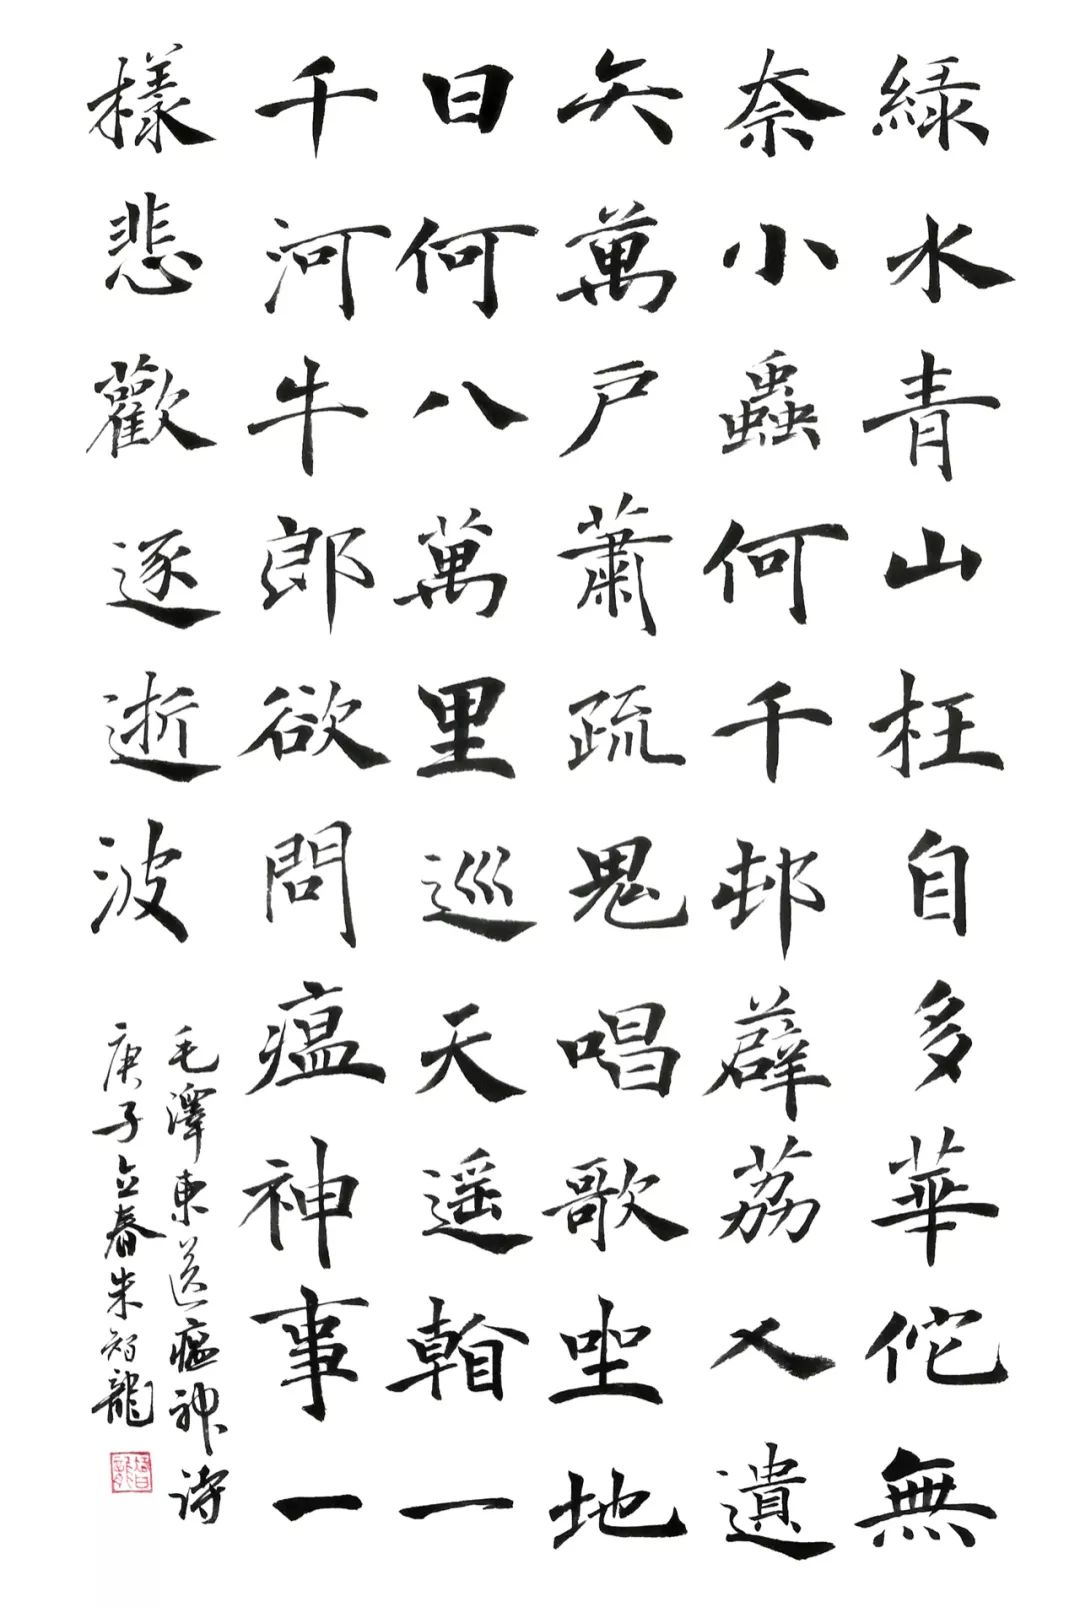 緑水青山枉自多華佗無
奈小蟲何千邨薜荔人遺
矢萬戸蕭疏鬼唱歌坐地
日何八萬里巡天遥看一
千河牛郎欲問瘟神事一
樣悲歡逐逝波
毛澤東送瘟神詩
庚子立春朱智龍